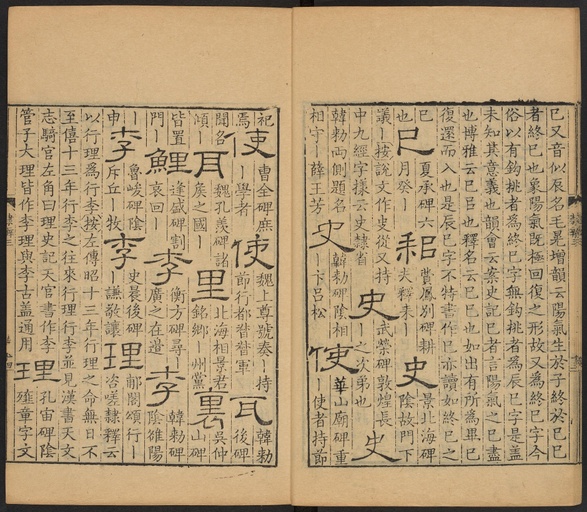 巳又音似辰名毛晃增韻云陽氣生於子終於巳巳
者終巳也象陽氣旣極回復之形故又爲終巳字今
俗以有鉤挑者爲終巳字無鉤挑者爲辰巳字是蓋
未知其意義也韻會云案史記巳者言陽氣之巳盡
也博雅云巳㠯也釋名云巳巳也如出有所爲畢巳
復還而入也是辰巳字不特書作巳亦讀如終巳之
巳 巳 夏承碑六 耜 賞鳳別碑耕 史 景北海碑
也 月癸丨 夫釋耒丨 陰故門下
議丨按說文作史從又持 史 武榮碑敦煌長
中九經字樣云史隸省 丨之次弟也 史
韓勑兩側題名 史 韓勑碑陰相 使 華山廟碑重
相守丨薛王芳 丨卞呂松 丨使者持節
祀 使 曹全碑庶 使 魏上尊號奏丨持 韓勑
焉 丨學者 節行都督督軍 後碑
聞名 魏孔羨碑諸 里 北海相景君 裏 吳仲
傾丨 矦之國丨 銘鄉丨州黨 山碑
皆置 鯉 逢盛碑割 李 衡方碑尋 李 韓勑碑
門丨 哀回丨 廣之在邊 陰雒陽
丨 李 魯峻碑陰 李 史晨後碑 理 郙閣頌行丨
申 斥丘丨牧 丨謙敬讓 咨嗟隸釋云
以行理爲行李按左傳昭十三年行理之命無日不
至僖十三年行李之往來行理行李並見漢書天文
志騎官左角曰理史記天官書作李 理 孔宙碑陰
管子大理皆作李理與李古蓋通用 丨童字文